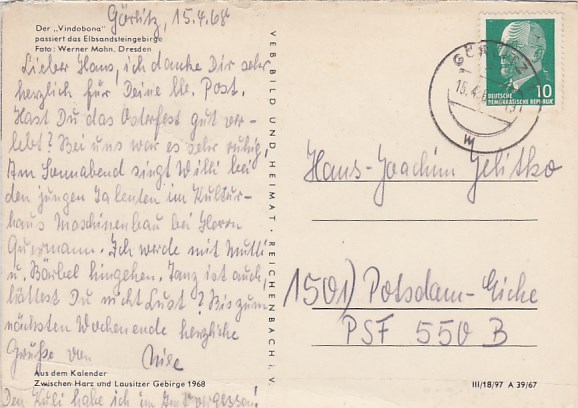 Görlitz, 15.4.68
Der „Vindobona"
passiert das Elbsandsteingebirge
Foto: Werner Mohn, Dresden
Lieber Hans, ich danke Dir sehr
herzlich für Deine lb. Post.
Hast Du das Osterfest gut ver-
lebt? Bei uns war es sehr ruhig,
Am Sonnabend singt Willi bei
den jungen Talenten im Kultur-
haus Maschinenbau bei Herrn
Ich werde mit Mutti
u. Bärbel hingehen. Tanz ist auch,
hättest Du nicht Lust? Bis zum
nächsten Wochenende herzliche
Grüße von
Aus dem Kalender
Zwischen Harz und Lausitzer Gebirge 1968
Den Kuli habe ich im vergessen!
VEB BILD UND HEIMAT · REICHENBACH i. V.
GÖRLITZ
15.4.
10
DEUTSCHE
DEMOKRATISCHE REPUBLIK
Hans-Joachim Jelitko
1501) Potsdam-Eiche
PSF 550 B
III/18/97 A 39/67